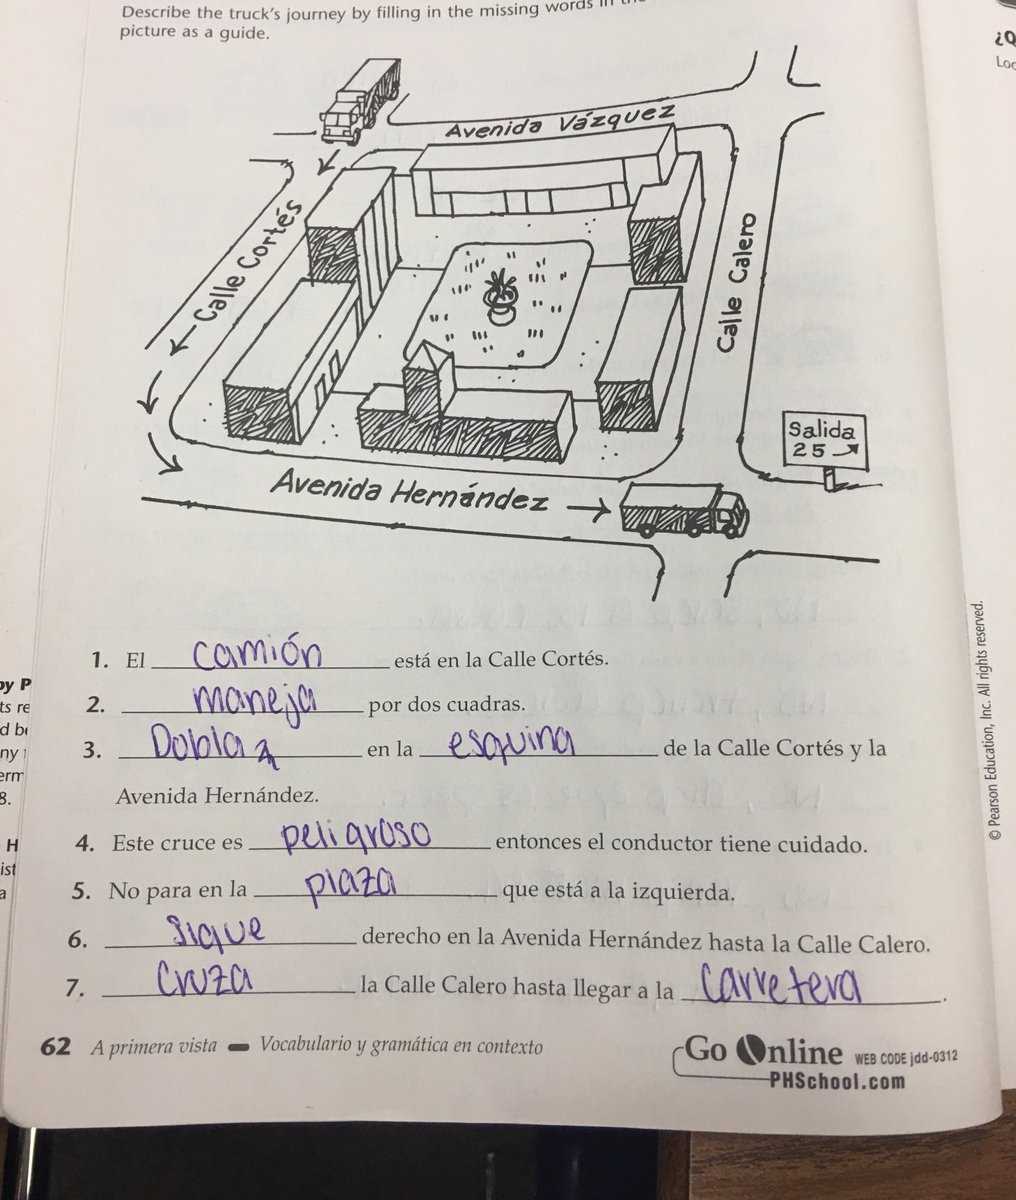 Describe the truck's journey by filling in the missing words in
picture as a guide.
¿Q
Loc
Avenida Vázquez
Calle Cortés
Calle Calero
Salida
25
Avenida Hernández
1. El camión está en la Calle Cortés.
2. maneja por dos cuadras.
3. Dobla en la esquina de la Calle Cortés y la
Avenida Hernández.
4. Este cruce es peligroso entonces el conductor tiene cuidado.
5. No para en la plaza que está a la izquierda.
6. sigue derecho en la Avenida Hernández hasta la Calle Calero.
7. Cruza la Calle Calero hasta llegar a la carretera.
62 A primera vista Vocabulario y gramática en contexto
Go Online WEB CODE jdd-0312
PHSchool.com
© Pearson Education, Inc. All rights reserved.